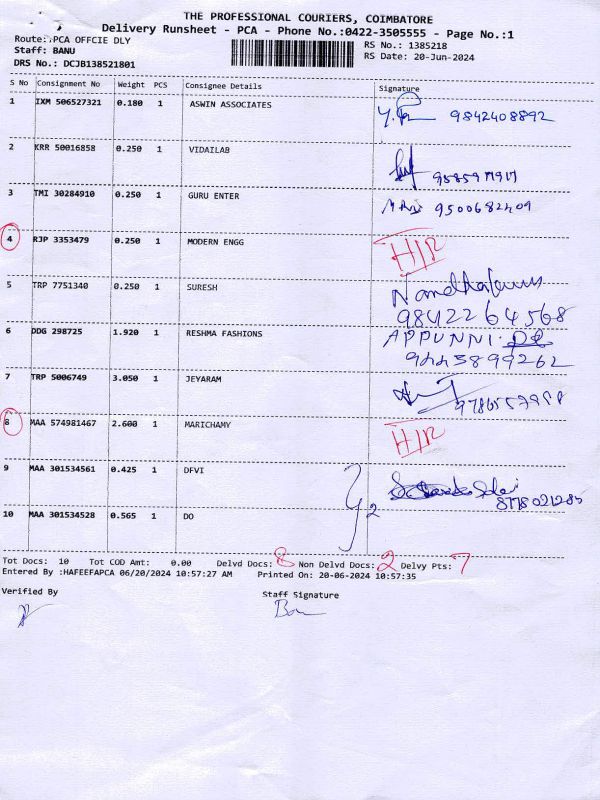 THE PROFESSIONAL COURIERS, COIMBATORE
Delivery Runsheet - PCA - Phone No.:0422-3505555 - Page No.:1
Route: PCA OFFCIE DLY
RS No.: 1385218
Staff: BANU
RS Date: 20-Jun-2024
DRS No.: DCJB138521801
S No Consignment No Weight PCS Consignee Details Signature
1 IXM 506527321 0.180 1 ASWIN ASSOCIATES 9842408892
2 KRR 50016858 0.250 1 VIDAILAB
3 TMI 30284910 0.250 1 GURU ENTER 9500682409
4 RJP 3353479 0.250 1 MODERN ENGG H/R
5 TRP 7751340 0.250 1 SURESH
9842264568
6 DDG 298725 1.920 1 RESHMA FASHIONS APPUNNI
9443899262
7 TRP 5006749 3.050 1 JEYARAM
8 MAA 574981467 2.600 1 MARICHAMY H/R
9 MAA 301534561 0.425 1 DFVI
10 MAA 301534528 0.565 1 DO 2
Tot Docs: 10 Tot COD Amt: 0.00 Delvd Docs: 8 Non Delvd Docs: 2 Delvy Pts: 7
Entered By :HAFEEFAPCA 06/20/2024 10:57:27 AM Printed On: 20-06-2024 10:57:35
Verified By Staff Signature